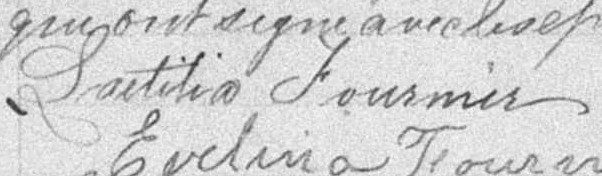 qui ont signé avec les ép
Laetitia Fournier
Evelina Fourn